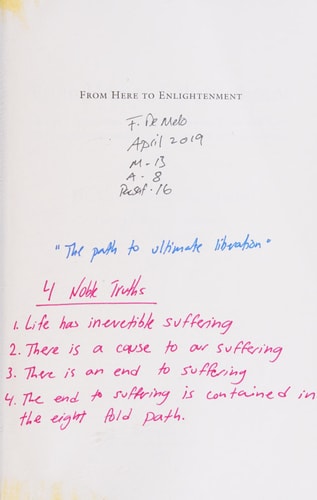 FROM HERE TO ENLIGHTENMENT
F. De Melo
April 2019
M - 13
A - 8
16
"The path to ultimate libration"
4 Noble Truths
1. Life has inevetible suffering
2. There is a cause to our suffering
3. There is an end to suffering
4. The end to suffering is contained in
the eight fold path.